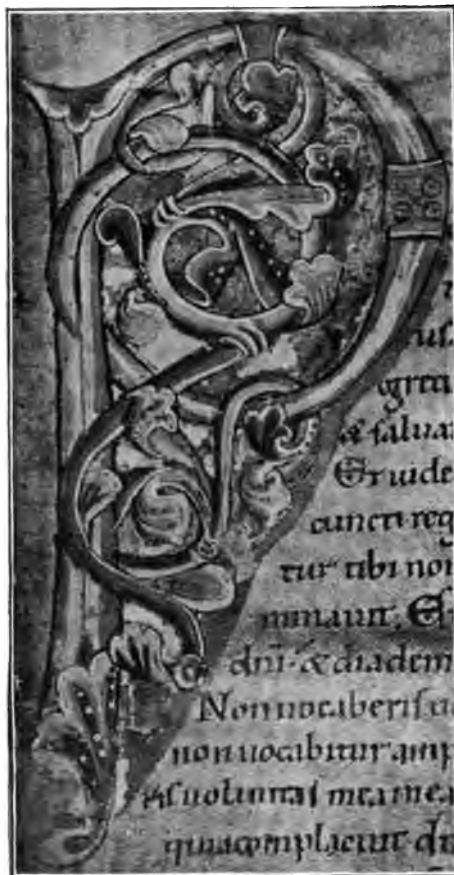 us.
& salua
Et uide
cuncti reg
tur tibi no
minauit; Et
dni. & diadem
Non uocaberis
non uocabitur amp
ris uoluntas mea in ea
quia complacuit d